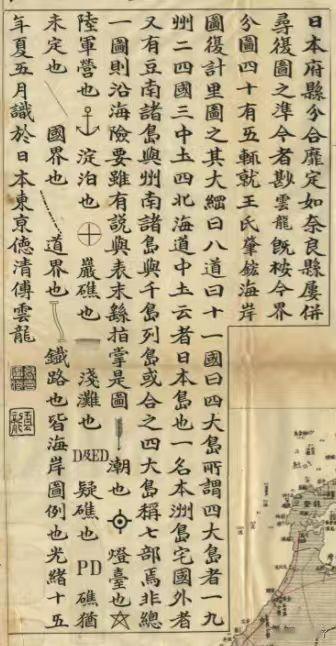 日本府縣分合靡定如奈良縣屢併
尋復圖之準今者尠雲龍旣桉今界
分圖四十有五輒就王氏肇鋐海岸
圖復計里圖之其大綱曰八道曰十一國曰四大島所謂四大島者一九
州二四國三中土四北海道中土云者日本島也一名本洲島宅國外者
又有豆南諸島與州南諸島與千島列島或合之四大島稱七部焉非總
一圖則沿海險要雖有說與表末繇指掌是圖 潮也 燈臺也
陸軍營也 淀泊也 巖礁也 淺灘也 D&ED 疑礁也 PD 礁猶
未定也 國界也 道界也 鐵路也皆海岸圖例也光緒十五
年夏五月識於日本東京德清傅雲龍